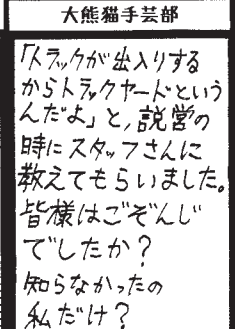 大熊猫手芸部
「トラックが出入りする
からトラックヤードという
んだよ」と，説営の
時にスタッフさんに
教えてもらいました。
皆様はごぞんじ
でしたか？
知らなかったの
私だけ？